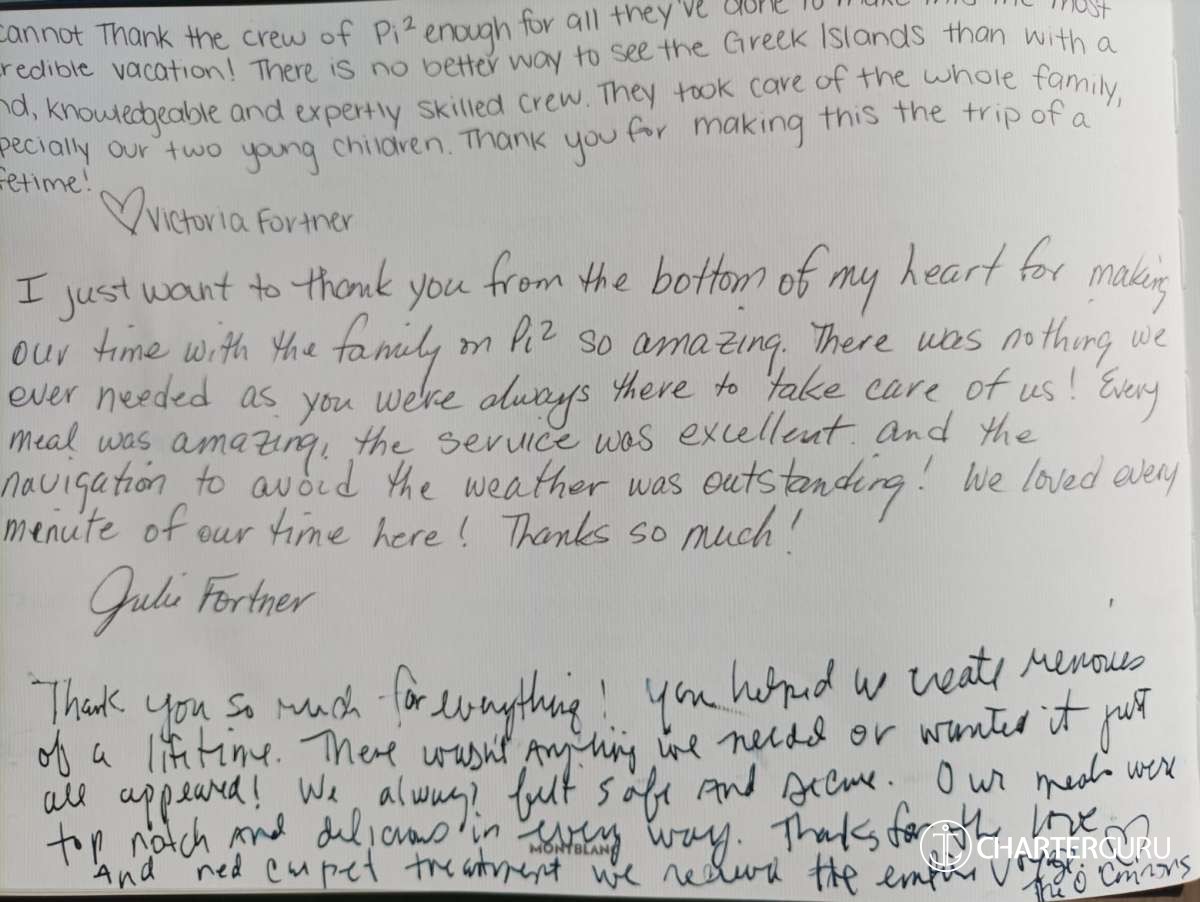 cannot Thank the crew of Pi² enough for all they've done to make this the most
redible vacation! There is no better way to see the Greek Islands than with a
nd, knowledgeable and expertly skilled crew. They took care of the whole family,
pecially our two young children. Thank you for making this the trip of a
fetime!
♡Victoria Fortner
I just want to thank you from the bottom of my heart for making
our time with the family on Pi² so amazing. There was nothing we
ever needed as you were always there to take care of us! Every
meal was amazing, the service was excellent and the
navigation to avoid the weather was outstanding! We loved every
minute of our time here! Thanks so much!
Julie Fortner
Thank you so much for everything! You helped us create memories
of a lifetime. There wasn't anything we needed or wanted it just
all appeared! We always felt safe and secure. Our meals were
top notch and delicious in every way. Thanks for the love
MONTBLANC
CHARTERGURU
And red carpet treatment we received the entire
The O'Connors